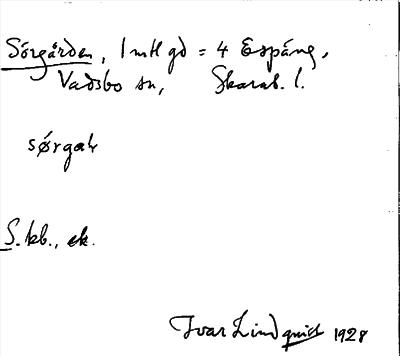 Sörgården, 1 mtl gd = 4 Espäng,
Vadsbo sn, Skarab. l.
sørgaɳ
S. kb., ek.
Ivar Lindquist 1928